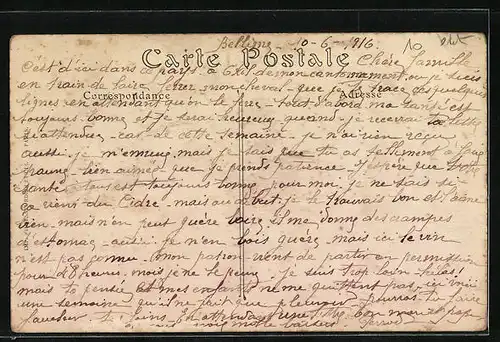 Bellême 10-6-1916
Carte Postale
Chère famille
C'est d'ici dans ce pays à 6 kil de mon cantonnement ou je suis
en train de faire ferrer mon cheval que je trace ces quelques
Correspondance Adresse
lignes en attendant qu'on le ferre tout d'abord ma santé est
toujours bonne et je serai heureux quand je recevrai ta lettre
car de cette semaine je n'ai rien reçu
aussi je m'ennuie mais je sais que tu as tellement à faire
que je prends patience J'espère que votre
santé à tous est toujours bonne pour moi je ne sais si
ça vient du Cidre mais au début je le trouvais bon et même
rien mais n'en peut guère boire il me donne des crampes
d'estomac aussi je n'en bois guère mais ici le vin
n'est pas connu mon patron vient de partir en permission
pour 48 heures moi je ne le peux je suis trop loin hélas!
mais ta pensée et mes enfants ne me quittent pas ici voici
une semaine qu'il ne fait que pleuvoir pourras tu faire
tes foins En attendant une
mille baisers